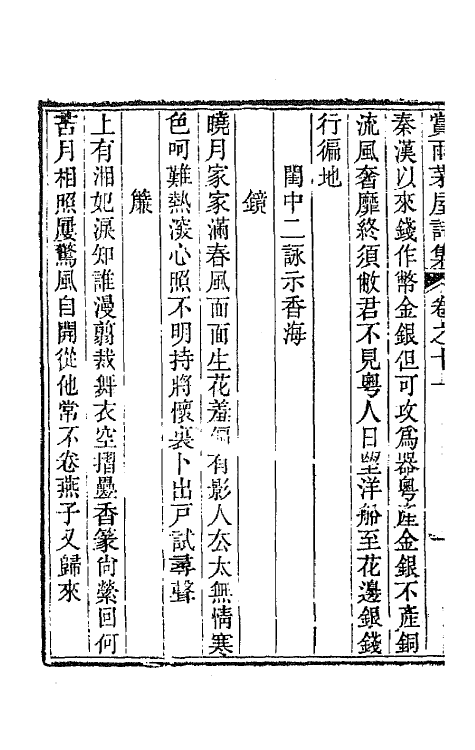 賞雨茅屋詩集 卷之十一
秦漢以來錢作幣金銀但可攻爲器粵產金銀不產銅
流風奢靡終須敝君不見粵人日望洋船至花邊銀錢
行徧地
閨中二詠示香海
鏡
曉月家家滿春風面面生花羞偏有影人公太無情寒
色呵難熱淚心照不明持將懷裏卜出戸試尋聲
簾
上有湘妃淚知誰漫翦裁舞衣空摺疊香篆尙縈回何
苦月相照屢驚風自開從他常不卷燕子又歸來